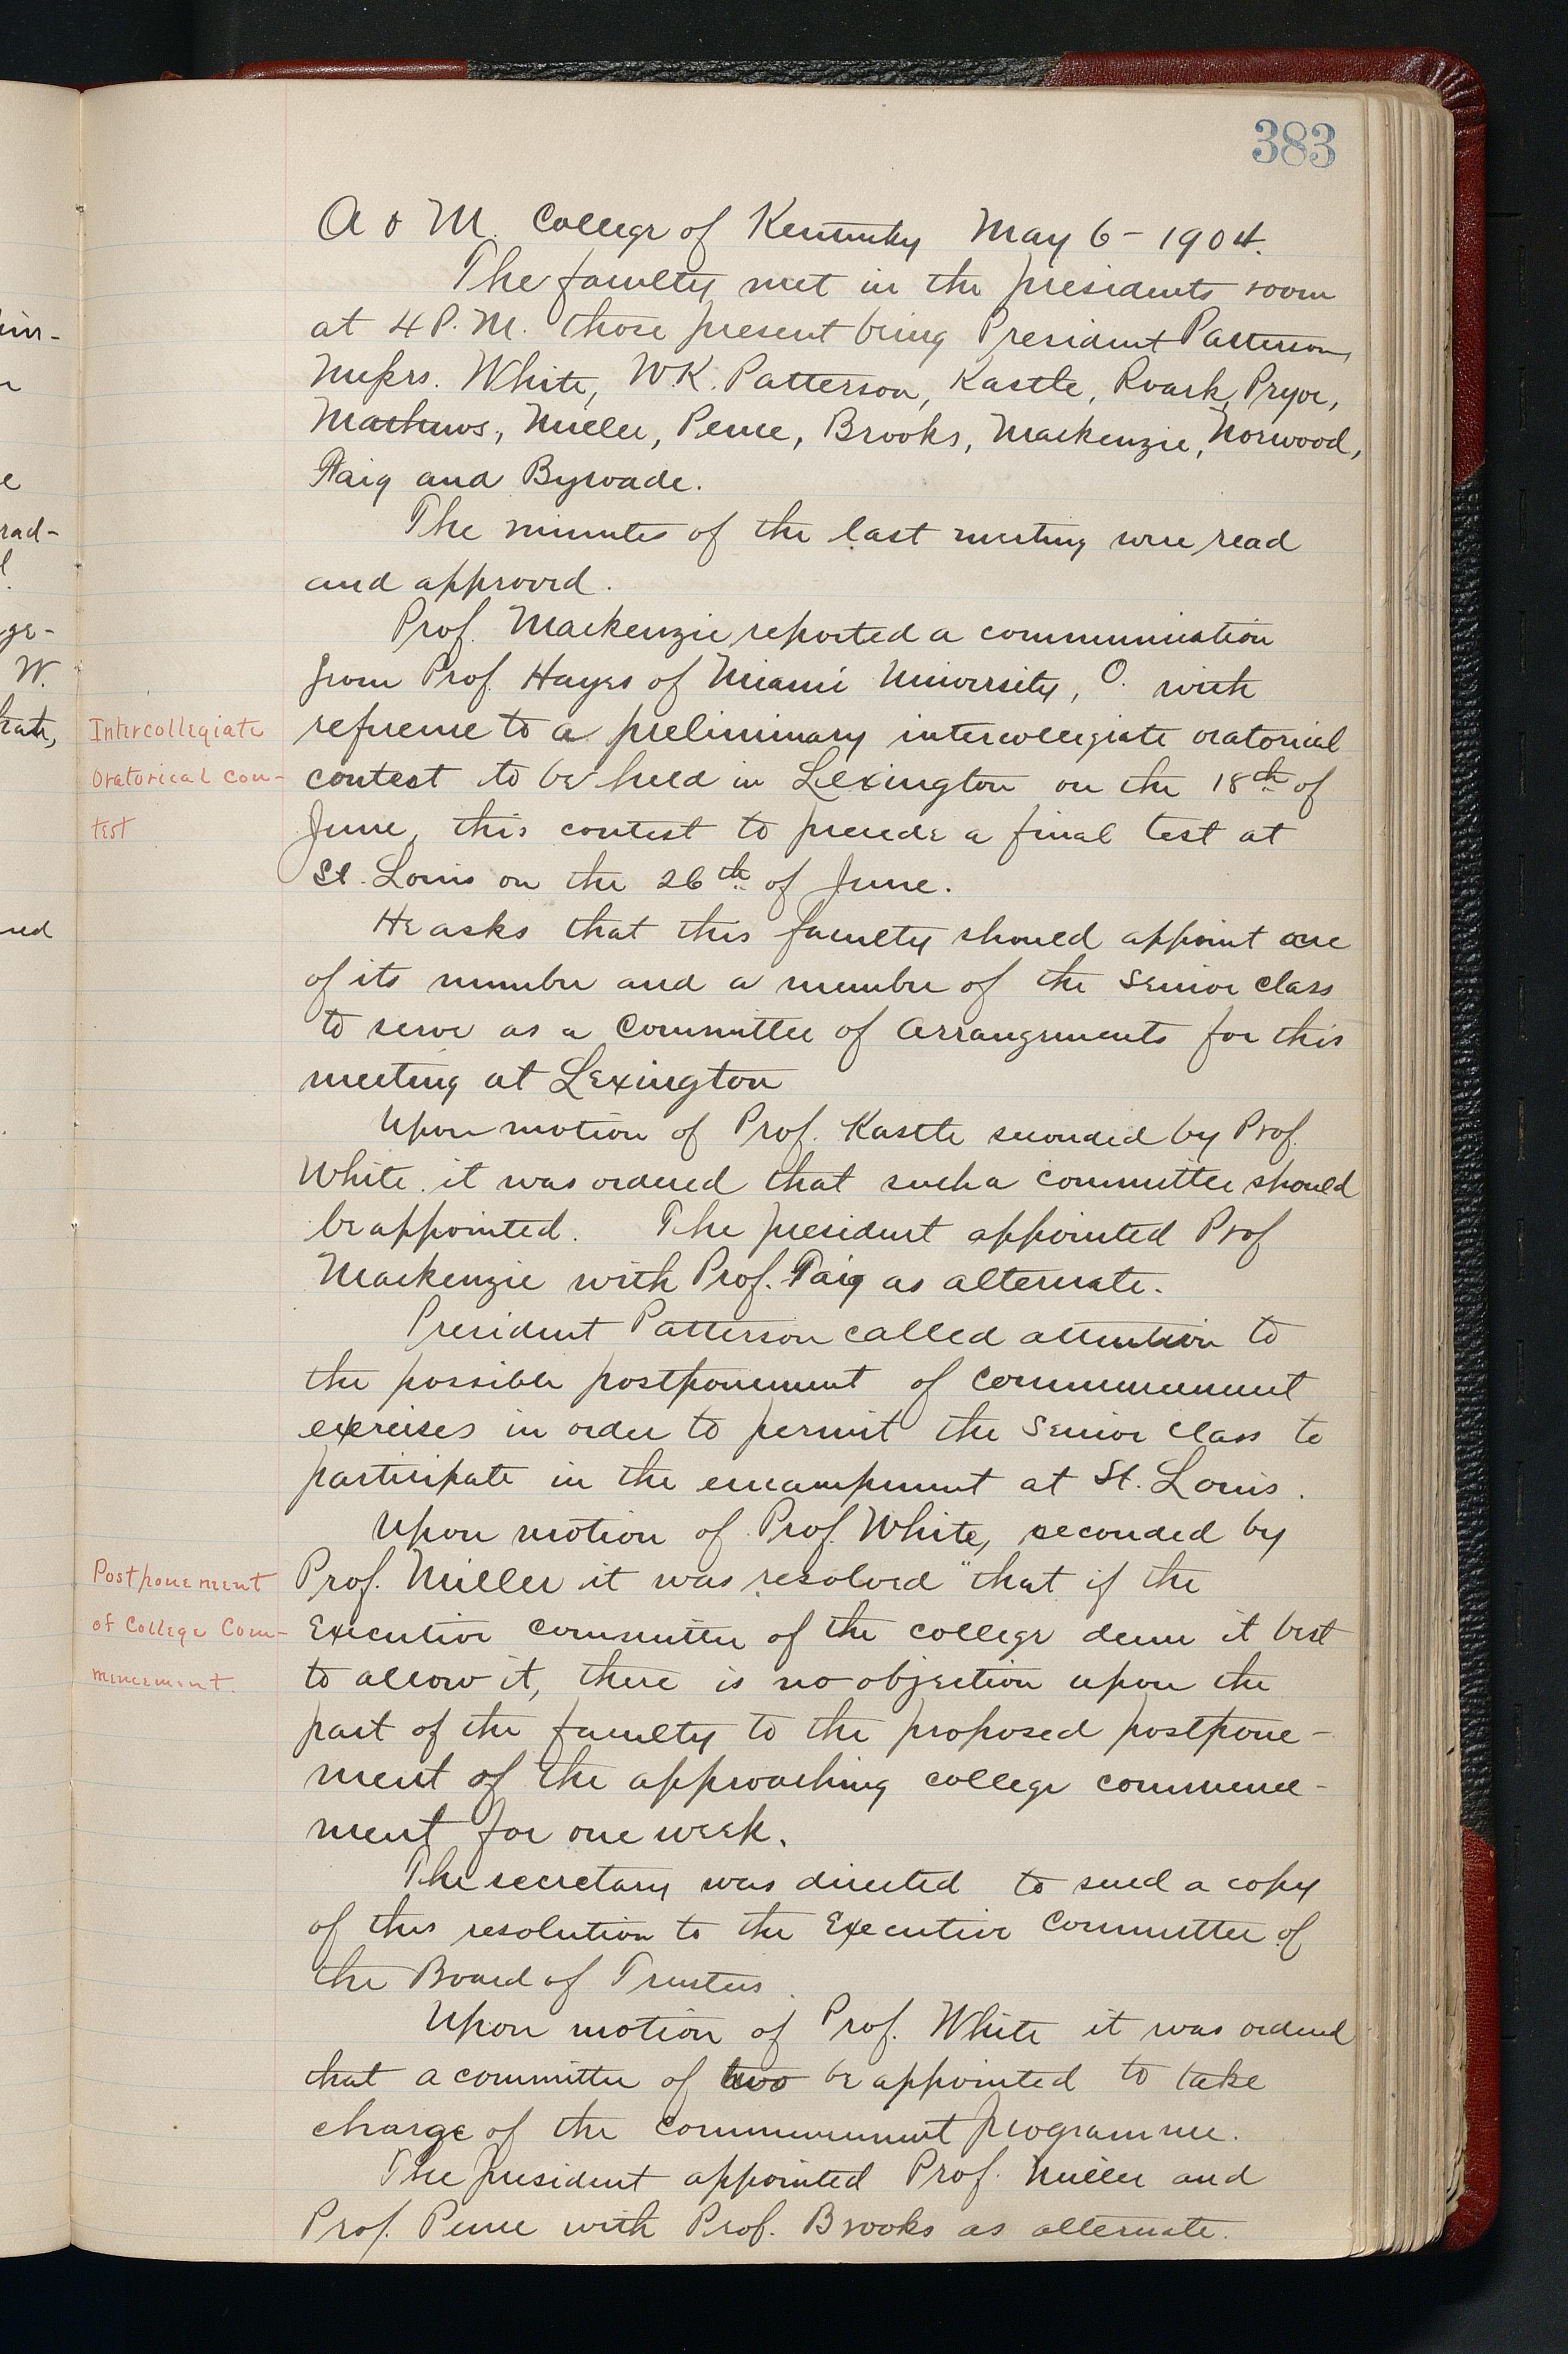 383
A & M. College of Kentucky May 6 - 1904.
The faculty met in the presidents room
at 4 P.M. those present being President Patterson,
Messrs. White, W.K. Patterson, Kastle, Roark, Pryor,
Mathews, Miller, Pence, Brooks, Mackenzie, Norwood,
Faig and Byroade.
The minutes of the last meeting were read
and approved.
Prof. Mackenzie reported a communication
from Prof. Hayes of Miami University, O. with
Intercollegiate
reference to a preliminary intercollegiate oratorical
Oratorical con-
contest to be held in Lexington on the 18th of
test
June, this contest to precede a final test at
St. Louis on the 26th of June.
He asks that this faculty should appoint one
of its number and a member of the Senior Class
to serve as a Committee of Arrangements for this
meeting at Lexington
Upon motion of Prof. Kastle seconded by Prof.
White it was ordered that such a committee should
be appointed. The president appointed Prof
Mackenzie with Prof. Faig as alternate.
President Patterson called attention to
the possible postponement of Commencement
exercises in order to permit the Senior Class to
participate in the encampment at St. Louis.
Upon motion of Prof. White, seconded by
Postponement
Prof. Miller it was resolved "that if the
of College Com-
Executive Committee of the college deem it best
mencement.
to allow it, there is no objection upon the
part of the faculty to the proposed postpone-
ment of the approaching college commence-
ment for one week.
The secretary was directed to send a copy
of this resolution to the Executive Committee of
the Board of Trustees.
Upon motion of Prof. White it was ordered
that a committee of two be appointed to take
charge of the Commencement programme.
The president appointed Prof. Miller and
Prof. Pence with Prof. Brooks as alternate.